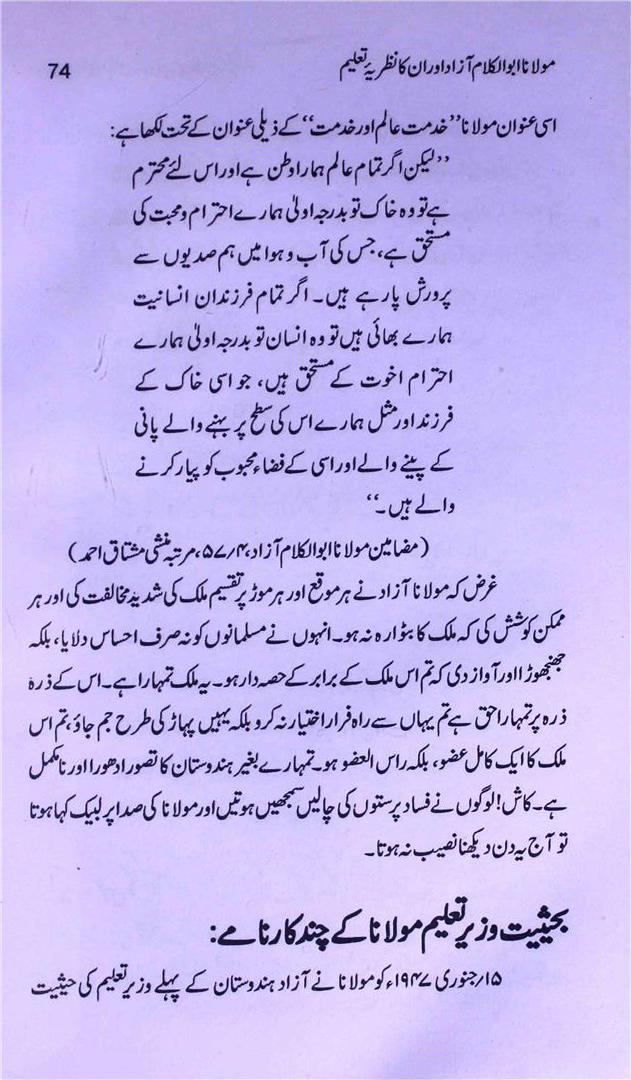 مولانا ابوالکلام آزاد اور ان کا نظریۂ تعلیم 74
اسی عنوان مولانا ”خدمت عالم اور خدمت“ کے ذیلی عنوان کے تحت لکھا ہے:
”لیکن اگر تمام عالم ہمارا وطن ہے اور اس لئے محترم
ہے تو وہ خاک تو بدرجہ اولیٰ ہمارے احترام و محبت کی
مستحق ہے، جس کی آب و ہوا میں ہم صدیوں سے
پرورش پا رہے ہیں۔ اگر تمام فرزندان انسانیت
ہمارے بھائی ہیں تو وہ انسان تو بدرجہ اولیٰ ہمارے
احترام اخوت کے مستحق ہیں، جو اسی خاک کے
فرزند اور مثل ہمارے اس کی سطح پر بہنے والے پانی
کے پینے والے اور اسی کے فضاء محبوب کو پیار کرنے
والے ہیں۔“
(مضامین مولانا ابوالکلام آزاد، ۴/۵۷، مرتبہ منشی مشتاق احمد)
غرض کہ مولانا آزاد نے ہر موقع اور ہر موڑ پر تقسیم ملک کی شدید مخالفت کی اور ہر
ممکن کوشش کی کہ ملک کا بٹوارہ نہ ہو۔ انہوں نے مسلمانوں کو نہ صرف احساس دلایا، بلکہ
جھنجھوڑا اور آواز دی کہ تم اس ملک کے برابر کے حصہ دار ہو۔ یہ ملک تمہارا ہے۔ اس کے ذرہ
ذرہ پر تمہارا حق ہے تم یہاں سے راہ فرار اختیار نہ کرو بلکہ یہیں پہاڑ کی طرح جم جاؤ، تم اس
ملک کا ایک کامل عضو، بلکہ راس العضو ہو۔ تمہارے بغیر ہندوستان کا تصور ادھورا اور نامکمل
ہے۔ کاش! لوگوں نے فساد پرستوں کی چالیں سمجھیں ہوتیں اور مولانا کی صدا پر لبیک کہا ہوتا
تو آج یہ دن دیکھنا نصیب نہ ہوتا۔
بحیثیت وزیر تعلیم مولانا کے چند کارنامے:
۱۵/جنوری ۱۹۴۷ء کو مولانا نے آزاد ہندوستان کے پہلے وزیر تعلیم کی حیثیت